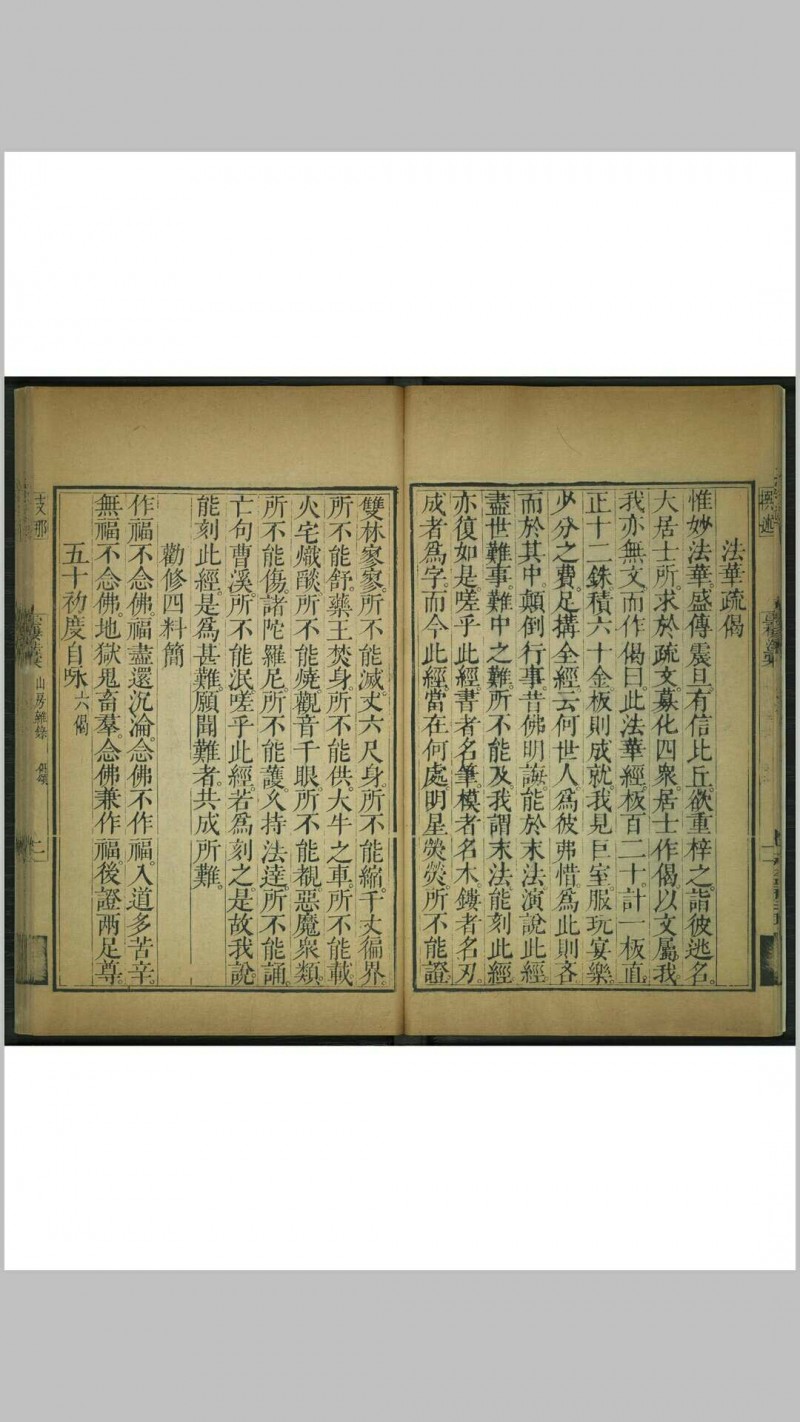 法華疏偈
惟妙法華。盛傳震旦。有信比丘。欲重梓之。詣彼逃名。
大居士所。求於疏文。募化四衆。居士作偈。以文屬我。
我亦無文。而作偈曰。此法華經。板百二十。計一板直。
正十二銖。積六十金。板則成就。我見巨室。服玩宴樂。
少分之費。足搆全經。云何世人。爲彼弗惜。爲此則吝
而於其中。顛倒行事。昔佛明誨。能於末法。演說此經
盡世難事。難中之難。所不能及。我謂末法。能刻此經
亦復如是。嗟乎此經。書者名筆。模者名木。鏤者名刃。
成者爲字。而今此經。當在何處。明星熒熒。所不能證。
雙林寥寥。所不能滅。丈六尺身。所不能縮。千丈徧界。
所不能舒。藥王焚身。所不能供。大牛之車。所不能載。
火宅熾燄。所不能燒。觀音千眼。所不能覩。惡魔衆類。
所不能傷。諸陀羅尼。所不能護。久持法達。所不能誦。
亡句曹溪。所不能泯。嗟乎此經。若爲刻之。是故我說
能刻此經。是爲甚難。願聞難者。共成所難。
勸修四料簡
作福不念佛。福盡還沉淪。念佛不作福。入道多苦辛。
無福不念佛。地獄鬼畜羣。念佛兼作福。後證兩足尊。
五十初度自咏 六偈
支那
山房雜錄
二